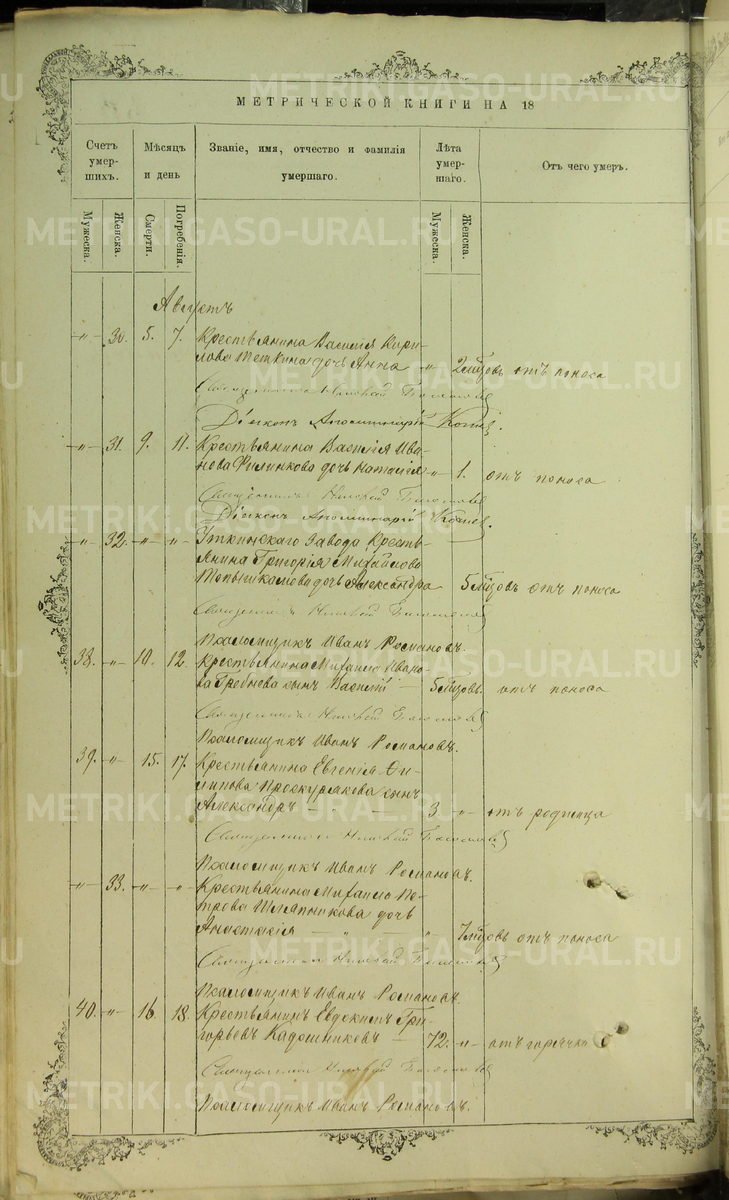 МЕТРИЧЕСКОЙ КНИГИ НА 18
Счетъ умер- шихъ.
Мѣсяцъ и день
Званіе, имя, отчество и фамилія умершаго.
Лѣта умер- шаго.
Отъ чего умеръ.
Мужеска.
Женска.
Смерти.
Погребенія.
Мужеска.
Женска.
METRIKI.GASO-URAL.RU
Августъ
-"- 30. 5. 7. Крестьянина Василія Кири-
лова Теткина дочь Анна " 2 мѣсцовъ отъ поноса
Священникъ Николай
Діаконъ Аполлинарій
-"- 31. 9. 11. Крестьянина Василія Ива-
нова Филинкова дочь Наталія -"- 1. отъ поноса
Священникъ Николай
Діаконъ Аполлинарій
-"- 32. -"- -"- Уткинскаго Завода Кресть-
янина Григорія Михайлова
дочь Александра 5 мѣсцовъ отъ поноса
Священникъ Николай
Псаломщикъ Иванъ Романовъ.
38. -"- 10. 12. Крестьянина Михаила Ивано-
ва Гребнова сынъ Василій — 5 мѣсцовъ. отъ поноса
Священникъ Николай
Псаломщикъ Иванъ Романовъ.
39. -"- 15. 17. Крестьянина Евгенія Фи-
липова Проскурякова сынъ
Александръ - " - 3 -"- отъ родимца
Священникъ Николай
Псаломщикъ Иванъ Романовъ.
-"- 33. -"- -"- Крестьянина Михаила Пе-
трова Шляпникова дочь
Анастасія — " — " 7 мѣсцовъ отъ поноса
Священникъ Николай
Псаломщикъ Иванъ Романовъ.
40. -"- 16. 18. Крестьянинъ Евдокимъ Гри-
горьевъ Кадошниковъ — 72. -"- отъ горячки
Священникъ Николай
Псаломщикъ Иванъ Романовъ.